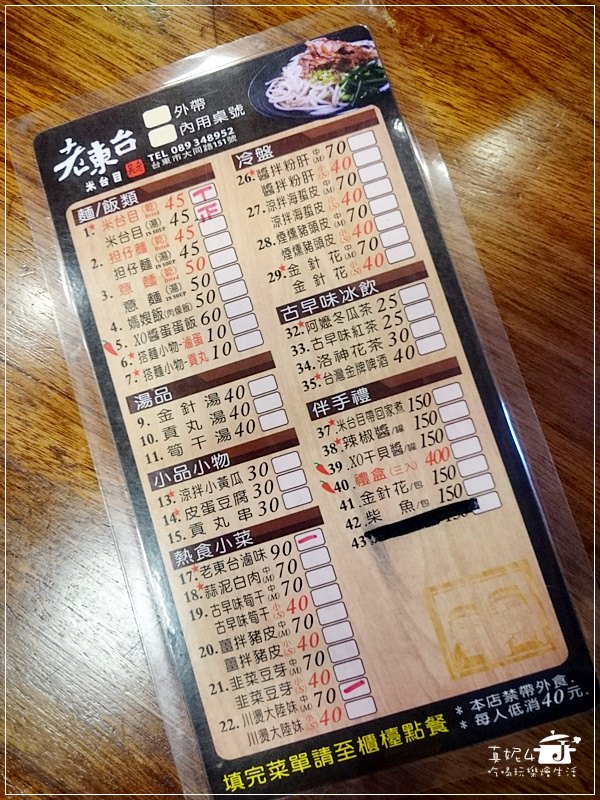 老東台
米台目
外帶
內用桌號
TEL 089 348952
台東市大同路151號
麵/飯類
1.*米台目(乾)Dried 45
米台目(湯)IN SOUP 45
2. 担仔麵(乾)Dried 45
担仔麵(湯)IN SOUP 45
3. 意麵(乾)Dried 50
意麵(湯)IN SOUP 50
4. 媽嫂飯(肉燥飯) 50
5. XO醬蛋蛋飯 60
6.*搭麵小物-滷蛋 10
7.*搭麵小物-貢丸 10
湯品
9. 金針湯 40
10. 貢丸湯 40
11. 筍干湯 40
小品小物
13.*涼拌小黃瓜 30
14.*皮蛋豆腐 30
15. 貢丸串 30
熱食小菜
17.*老東台滷味 90
18.*蒜泥白肉 中(M) 70
19. 古早味筍干 中(M) 70
古早味筍干 小(S) 40
20. 薑拌豬皮 中(M) 70
薑拌豬皮 小(S) 40
21. 韭菜豆芽 中(M) 70
韭菜豆芽 小(S) 40
22. 川燙大陸妹 中(M) 70
川燙大陸妹 小(S) 40
冷盤
26.*醬拌粉肝 中(M) 70
醬拌粉肝 小(S) 40
27. 涼拌海蜇皮 中(M) 70
涼拌海蜇皮 小(S) 40
28. 煙燻豬頭皮 中(M) 70
煙燻豬頭皮 小(S) 40
29.*金針花 中(M) 70
金針花 小(S) 40
古早味冰飲
32.*阿嬤冬瓜茶 25
33. 古早味紅茶 25
34. 洛神花茶 30
35.*台灣金牌啤酒 40
伴手禮
37.*米台目帶回家煮 150
38.*辣椒醬/罐 150
39. XO干貝醬/罐 150
40. 禮盒(三入) 400
41. 金針花/包 150
42. 柴魚/包 150
43.
*本店禁帶外食.
*每人低消40元.
填完菜單請至櫃檯點餐
真妮4
吃喝玩樂燴生活